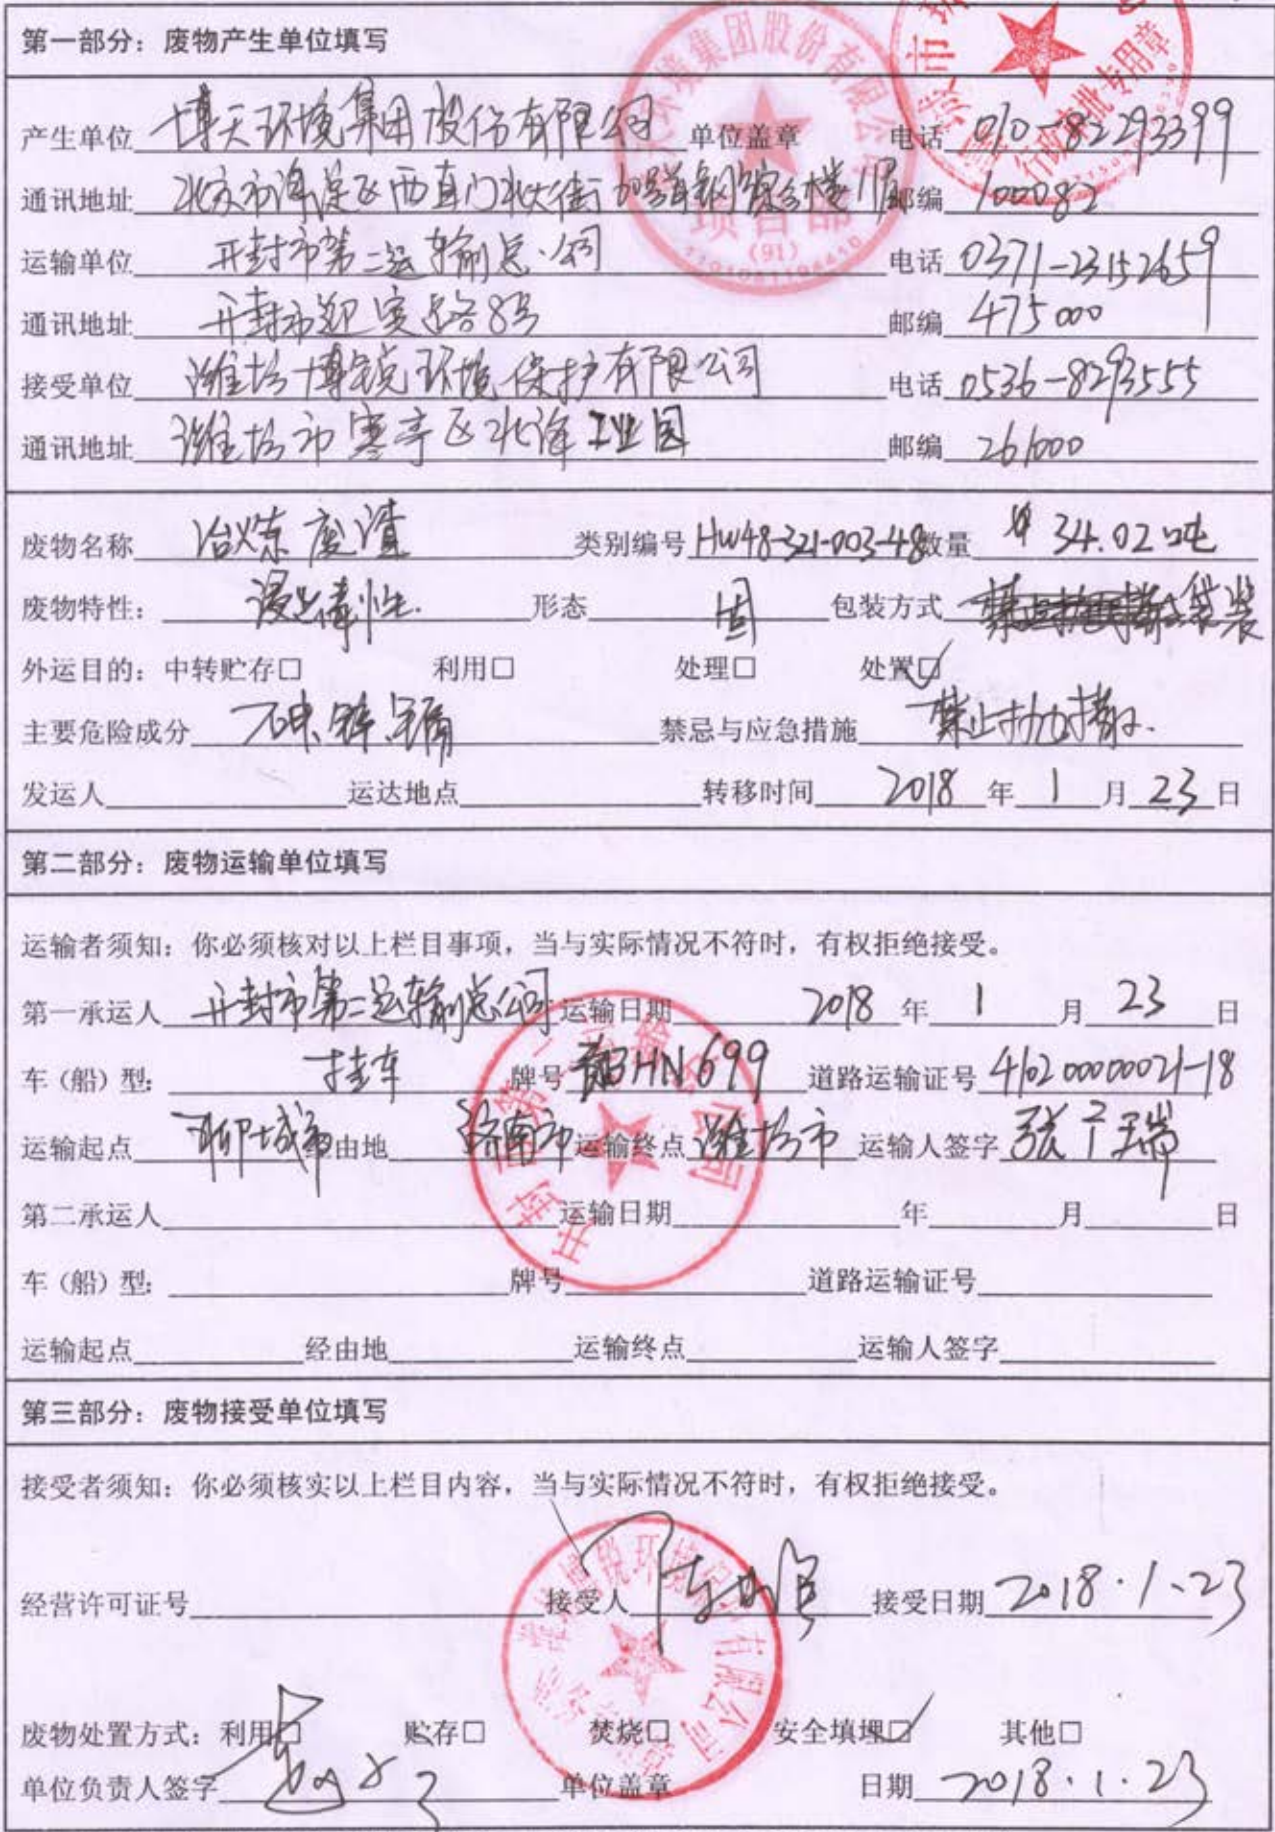 第一部分：废物产生单位填写
产生单位 博天环境集团股份有限公司 单位盖章 电话 010-82293399
通讯地址 北京市海淀区西直门北大街 邮编 100082
运输单位 开封市第二运输总公司 电话 0371-23152659
通讯地址 开封市迎宾路8号 邮编 475000
接受单位 潍坊博锐环境保护有限公司 电话 0536-8293555
通讯地址 潍坊市寒亭区北海工业园 邮编 261000
废物名称 冶炼废渣 类别编号 HW48-321-003-48 数量 34.02吨
废物特性： 浸出毒性 形态 固 包装方式 袋装
外运目的：中转贮存□ 利用□ 处理□ 处置☑
主要危险成分 砷.锌.镉 禁忌与应急措施 禁止抛撒.
发运人 运达地点 转移时间 2018 年 1 月 23 日
第二部分：废物运输单位填写
运输者须知：你必须核对以上栏目事项，当与实际情况不符时，有权拒绝接受。
第一承运人 开封市第二运输总公司 运输日期 2018 年 1 月 23 日
车（船）型: 挂车 牌号 HN699 道路运输证号 41020000021-18
运输起点 聊城市 由地 济南市 运输终点 潍坊市 运输人签字
第二承运人 运输日期 年 月 日
车（船）型: 牌号 道路运输证号
运输起点 经由地 运输终点 运输人签字
第三部分：废物接受单位填写
接受者须知：你必须核实以上栏目内容，当与实际情况不符时，有权拒绝接受。
经营许可证号 接受人 接受日期 2018.1.23
废物处置方式：利用□ 贮存□ 焚烧□ 安全填埋☑ 其他□
单位负责人签字 单位盖章 日期 2018.1.23